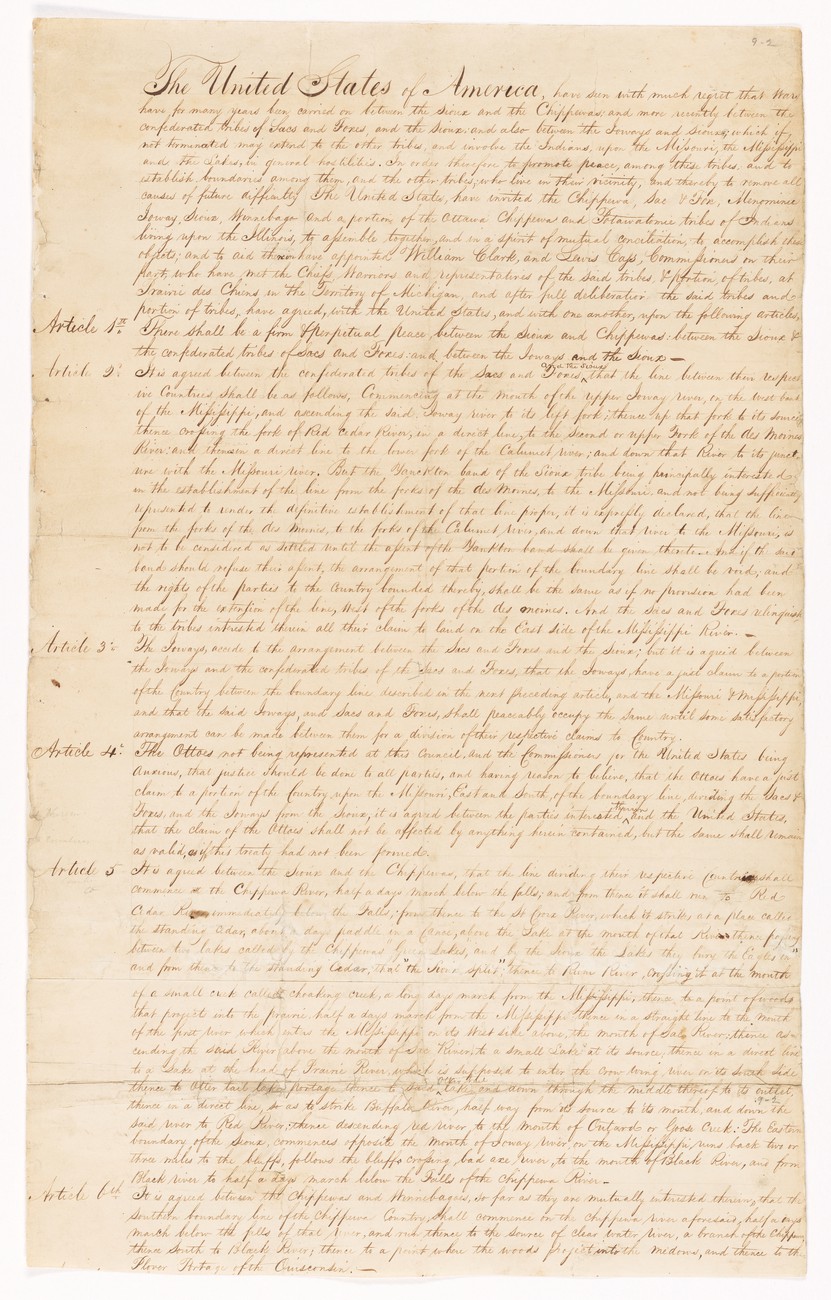 9-2
The United States of America, have seen with much regret that Wars
have, for many years been carried on between the Sioux and the Chippewas, and more recently between the
confederated tribes of Sacs and Foxes, and the Sioux; and also between the Ioways and Sioux; which if
not terminated may extend to the other tribes, and involve the Indians, upon the Missouri, the Mississippi
and the Lakes, in general hostilities. In order therefore to promote peace, among these tribes, and to
establish boundaries among them, and the other tribes, who live in their vicinity, and thereby to remove all
causes of future difficulty The United States, have invited the Chippewa, Sac & Fox, Menominee
Ioway, Sioux, Winnebago and a portion of the Ottawa Chippewa and Potawatomie tribes of Indians
living upon the Illinois, to assemble together, and in a spirit of mutual conciliation, to accomplish these
objects; and to aid therein have appointed William Clark, and Lewis Cass, Commissioners on their
part, who have met the Chiefs, Warriors and representatives of the said tribes, & portion of tribes, at
Prairie des Chiens, in the Territory of Michigan, and after full deliberation the said tribes and
portion of tribes, have agreed, with the United States, and with one another, upon the following articles,
Article 1st. There shall be a firm & perpetual peace, between the Sioux and Chippewas: between the Sioux &
the confederated tribes of Sacs and Foxes: and between the Ioways and the Sioux —
Article 2d It is agreed between the confederated tribes of the Sacs and Foxes, and the Sioux that the line between their respect
ive Countries shall be as follows, Commencing at the Mouth of the upper Ioway river, on the west bank
of the Mississippi, and ascending the said, Ioway river to its left fork; thence up that fork to its source,
thence crossing the fork of Red Cedar River, in a direct line, to the Second or upper Fork of the des Moines
River: and thence in a direct line to the lower fork of the Calumet river; and down that River to its junct-
ure with the Missouri river. But the Yanckton band of the Sioux tribe being principally interested
in the establishment of the line from the forks of the des Moines, to the Missouri, and not being sufficiently
represented to render the definitive establishment of that line proper, it is expressly declared, that the line
from the forks of the des Moines, to the forks of the Calumet river, and down that river to the Missouri, is
not to be considered as settled until the assent of the Yankton band shall be given thereto. And if the said
band should refuse their assent, the arrangement of that portion of the boundary line shall be void, and
the rights of the parties to the Country bounded thereby, shall be the same as if no provision had been
made for the extension of the line, West of the forks of the des moines. And the Sacs and Foxes relinquish
to the tribes interested therein all their claim to land on the East side of the Mississippi River. —
Article 3d The Ioways, accede to the arrangement between the Sacs and Foxes and the Sioux; but it is agreed between
the Ioways and the confederated tribes of the Sacs and Foxes, that the Ioways, have a just claim to a portion
of the Country between the boundary line described in the next preceding article, and the Missouri & Mississippi,
and that the said Ioways, and Sacs and Foxes, shall peaceably occupy the same until some satisfactory
arrangement can be made between them for a division of their respective claims to Country.
Article 4th The Ottoes not being represented at this Council, and the Commissioners for the United States being
Anxious, that justice should be done to all parties, and having reason to believe, that the Ottoes have a just
claim to a portion of the Country upon the Missouri, East and South, of the boundary line, dividing the Sacs &
Foxes, and the Ioways from the Sioux, it is agreed between the parties interested therein and the United States,
that the claim of the Ottoes shall not be affected by anything herein contained, but the same shall remain
as valid, as if this treaty had not been formed.
Article 5 It is agreed between the Sioux and the Chippewas, that the line dividing their respective Countries shall
commence at the Chippewa River, half a days march below the falls; and from thence it shall run to Red
Cedar River immediately below the Falls; from thence to the St Croix River, which it strikes at a place called
the standing Cedar, about a days paddle in a Canoe, above the Lake at the mouth of that River: thence passing
between two lakes called by the Chippewas "Green Lakes, and by the Sioux the Lakes they bury the Eagles in"
and from thence to the standing Cedar, that "the Sioux Split", thence to Rum River, Crossing it at the mouth
of a small creek called choaking creek, a long days march from the Mississippi, thence, to a point of woods
that project into the prairie half a days march from the Mississippi thence in a straight line to the mouth
of the first river which enters the Mississippi on its West side above, the month of Sac River; thence as-
cending the said River (above the mouth of Sac River) to a small Lake at its source, thence in a direct line
to a Lake at the head of Prairie River, which is supposed to enter the Crow wing river on its South side
thence to Otter tail Lake Portage thence to said Otter tail Lake and down through the middle thereof to its outlet,
9-2
thence in a direct line, so as to strike Buffalo River, half way from its source to its mouth, and down the
said river to Red River; thence descending red river, to the mouth of Outard or Goose Creek: The Eastern
boundary of the Sioux, commences opposite the Mouth of Ioway River, on the Mississippi, runs back two or
three miles to the bluffs, follows the bluffs crossing bad axe, river, to the mouth of Black River, and from
Black river to half a days march below the Falls of the Chippewa River —
Article 6th It is agreed between the Chippewas and Winnebagoes, so far as they are mutually interested therein, that the
Southern boundary line of the Chippewa Country, shall commence on the Chippewa river aforesaid, half a days
march below the falls of that river, and run thence to the source of clear water river, a branch of the Chippewa,
thence South to Black River; thence to a point where the woods project into the medows, and thence to the
Plover Portage of the Ouisconsin. —